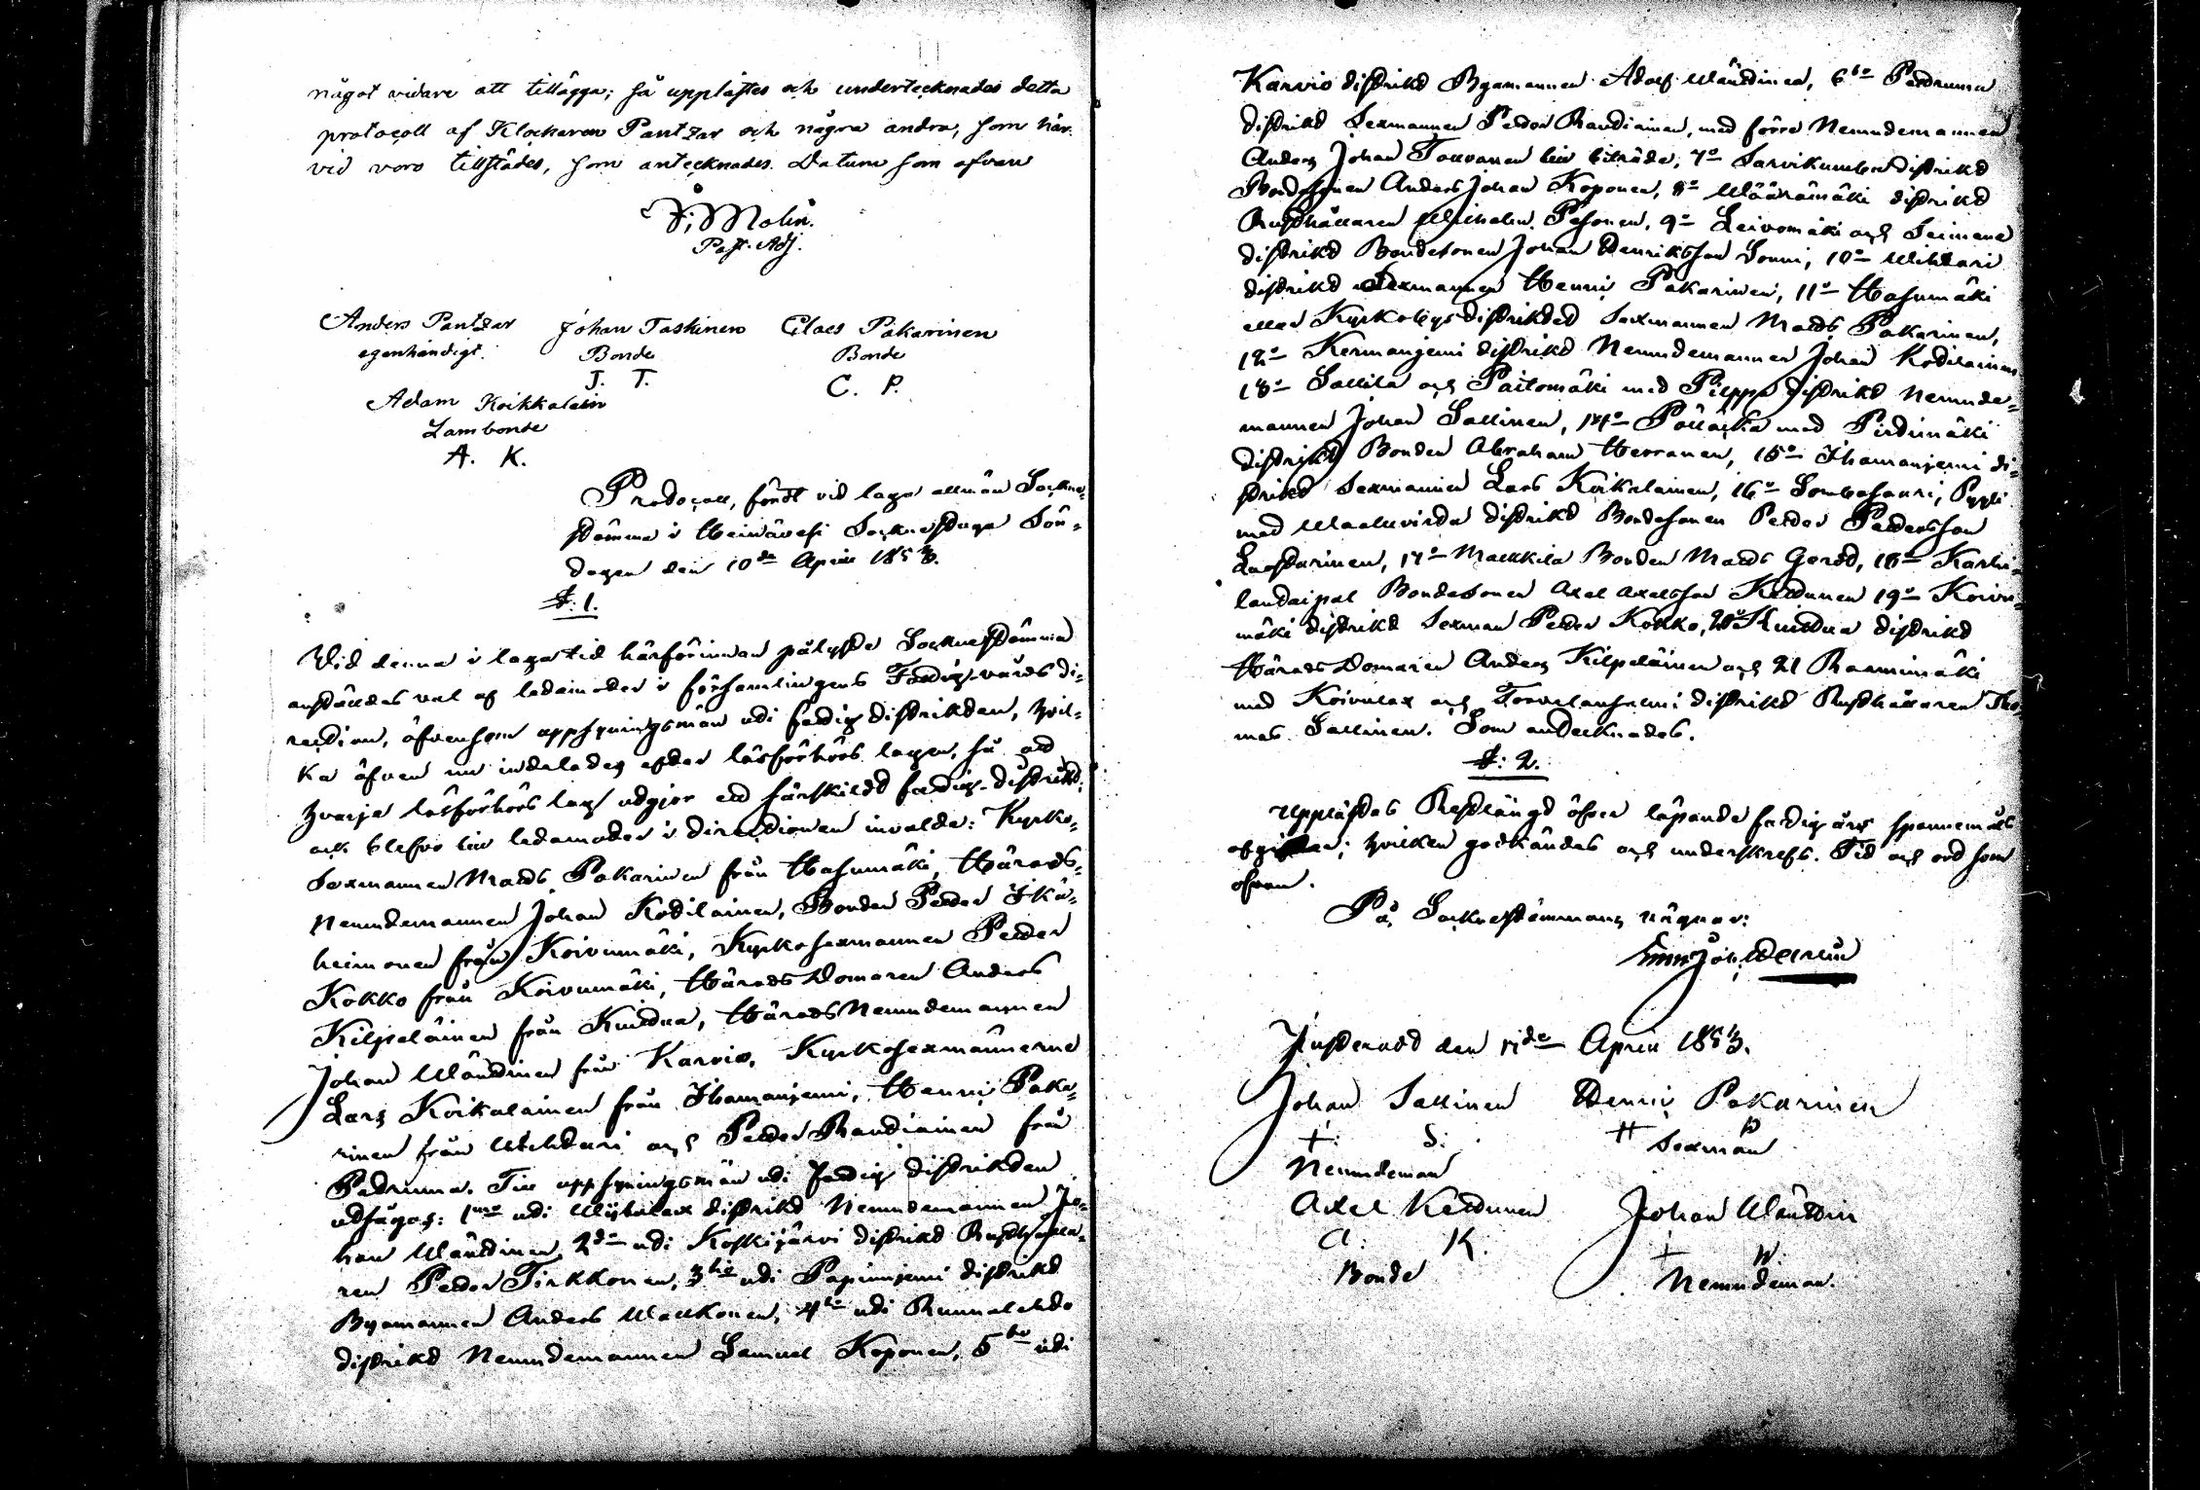 något vidare att tillägga; så upplästes och undertecknades detta
protocoll af Klockaren Pantzar och några andra, som här-
vid voro tillstädes, som antecknades. Datum som ofvan
J. Molin.
Past. Adj.
Anders Pantzar Johan Taskinen Claes Pakarinen
egenhändigt. Bonde Bonde
J. T. C. P.
Adam Koikkalain
Lambonde
A. K.
Protocoll, fördt vid laga allmän Sockne-
stämma i Heinävesi Socknestuga Sön-
dagen den 10de April 1853.
§: 1.
Vid denna i laga tid härförinnan pålyste Sockne Stämma
anställdes val af ledamöter i församlingens Fattig-vårds di-
rection, äfvensom uppsyningsmän uti fattig distrikten, hvil-
ka äfven nu indelades efter läsförhörs lagen, så att
hvarje läsförhörs lag utgjor ett särskildt fattig-distrikt;
och blefvo till ledamöter i directionen invalde: Kyrko-
Sexmannen Mats Pakarinen från Hasumäki, Härads-
Nemndemannen Johan Kotilainen, Bonden Petter Ikä-
heimonen från Koivumäki, Kyrkosexmannen Petter
Kokko från Koivumäki, Härads Domaren Anders
Kilpeläinen från Kuittua, Härads Nemndemannen
Johan Wänttinen från Karvio, Kyrkosexmännerne
Lars Koikalainen från Ihamaniemi, Henric Paka-
rinen från Wihtari och Petter Rautiainen från
Petruma. Till uppsyningsmän uti Fattig distrikten
utsågos: 1mo uti Wijhilax distrikt Nemndemannen Jo-
han Wänttinen, 2do uti Koskijärvi distrikt Rusthålla-
ren Petter Tirkkonen, 3tio uti Papinniemi distrikt
Byamannen Anders Malkonen, 4to uti Rummaleht
distrikt Nemndemannen Samuel Koponen, 5to uti
Karvio distrikt Byamannen Adolf Wänttinen, 6to Petruma
distrikt Sexmannen Petter Rautiainen, med förre Nemndemannen
Anders Johan Touvanen till biträde, 7o Sarvikumbu distrikt
Bondesonen Anders Johan Koponen, 8o Wäärämäki distrikt
Rusthållaren Wilhelm Pesonen, 9o Leivomäki och
distrikt Bondesonen Johan Henriksson Sonni, 10o Wihtari
distrikt Sexmannen Henric Pakarinen, 11o Hasumäki
eller Kyrkobys distriktet Sexmannen Mats Pakarinen,
12o Kermaniemi distrikt Nemndemannen Johan Kotilainen
13o Sallila och Paitomäki med Pilppa distrikt Nemnde-
mannen Johan Sallinen, 14o Pölläkkä med Pitkimäki
distrikt Bonden Abraham Herranen, 15o Ihamaniemi di-
strikt Sexmannen Lars Koikalainen, 16o Sombasaari, Pyyli
med Waaluvirta distrikt Bondesonen Petter Pettersson
Laustarinen, 17o Malkkila Bonden Mats Gerdt, 18o Karhi-
landaipal Bondesonen Axel Axelsson Kettunen 19o Koivu-
mäki distrikt Sexman Petter Kokko, 20o Kuittua distrikt
Härads Domaren Anders Kilpeläinen och 21 Rauminmäki
med Koivulax och Torvelansalmi distrikt Rusthållaren Tho-
mas Sallinen. Som antecknades.
§: 2.
Upplästes Restlängd öfver löpande fattig års spannemåls
afgifter; hvilken godkändes och underskrefs. Tid och ort som
ofvan.
På Sockenstämmans vägnar:
Justeradt den 17de April 1853.
Johan Sallinen Henric Pakarinen
+ S. H P
Nemndeman Sexman
Axel Kettunen Johan Wänttin
A. K. + W
Bonde Nemndeman.